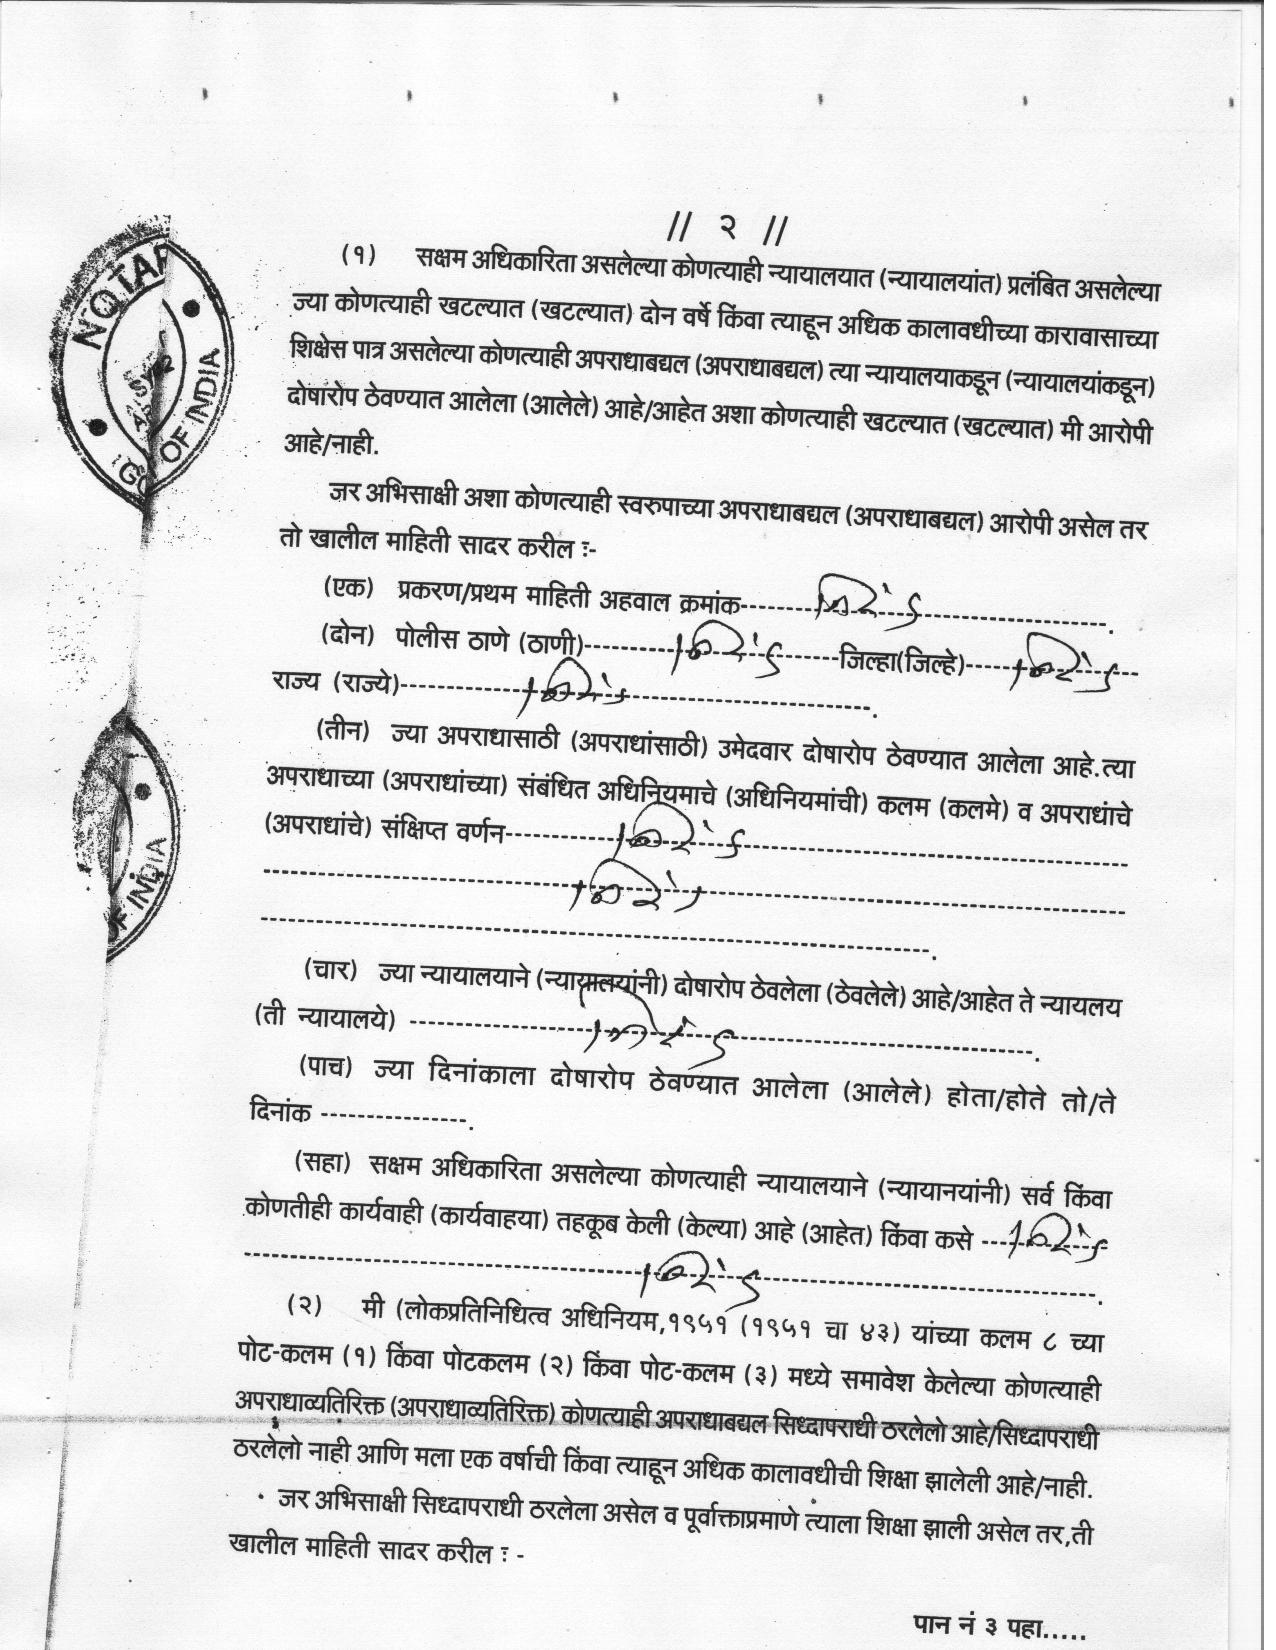 // २ //
(१) सक्षम अधिकारिता असलेल्या कोणत्याही न्यायालयात (न्यायालयांत) प्रलंबित असलेल्या
ज्या कोणत्याही खटल्यात (खटल्यात) दोन वर्षे किंवा त्याहून अधिक कालावधीच्या कारावासाच्या
शिक्षेस पात्र असलेल्या कोणत्याही अपराधाबद्यल (अपराधाबद्यल) त्या न्यायालयाकडून (न्यायालयांकडून)
दोषारोप ठेवण्यात आलेला (आलेले) आहे/आहेत अशा कोणत्याही खटल्यात (खटल्यात) मी आरोपी
आहे/नाही.
जर अभिसाक्षी अशा कोणत्याही स्वरुपाच्या अपराधाबद्यल (अपराधाबद्यल) आरोपी असेल तर
तो खालील माहिती सादर करील ः-
(एक) प्रकरण/प्रथम माहिती अहवाल क्रमांक--------- निरंक --------------------.
(दोन) पोलीस ठाणे (ठाणी)---------- निरंक --------जिल्हा(जिल्हे)------ निरंक ---
राज्य (राज्ये)-------------- निरंक ---------------------------.
(तीन) ज्या अपराधासाठी (अपराधांसाठी) उमेदवार दोषारोप ठेवण्यात आलेला आहे.त्या
अपराधाच्या (अपराधांच्या) संबंधित अधिनियमाचे (अधिनियमांची) कलम (कलमे) व अपराधांचे
(अपराधांचे) संक्षिप्त वर्णन------------- निरंक ------------------------------------------
----------------------------------- निरंक -----------------------------------------------
------------------------------------------------------------------------.
(चार) ज्या न्यायालयाने (न्यायालयांनी) दोषारोप ठेवलेला (ठेवलेले) आहे/आहेत ते न्यायलय
(ती न्यायालये) -------------------- निरंक ----------------------------------.
(पाच) ज्या दिनांकाला दोषारोप ठेवण्यात आलेला (आलेले) होता/होते तो/ते
दिनांक ----------------.
(सहा) सक्षम अधिकारिता असलेल्या कोणत्याही न्यायालयाने (न्यायानयांनी) सर्व किंवा
कोणतीही कार्यवाही (कार्यवाहया) तहकूब केली (केल्या) आहे (आहेत) किंवा कसे --- निरंक
------------------------------------------- निरंक -------------------------------------.
(२) मी (लोकप्रतिनिधित्व अधिनियम,१९५१ (१९५१ चा ४३) यांच्या कलम ८ च्या
पोट-कलम (१) किंवा पोटकलम (२) किंवा पोट-कलम (३) मध्ये समावेश केलेल्या कोणत्याही
अपराधाव्यतिरिक्त (अपराधाव्यतिरिक्त) कोणत्याही अपराधाबद्यल सिध्दापराधी ठरलेलो आहे/सिध्दापराधी
ठरलेलो नाही आणि मला एक वर्षाची किंवा त्याहून अधिक कालावधीची शिक्षा झालेली आहे/नाही.
जर अभिसाक्षी सिध्दापराधी ठरलेला असेल व पूर्वाक्ताप्रमाणे त्याला शिक्षा झाली असेल तर,ती
खालील माहिती सादर करील ः -
पान नं ३ पहा.....
NOTAR
OF INDIA
OF INDIA